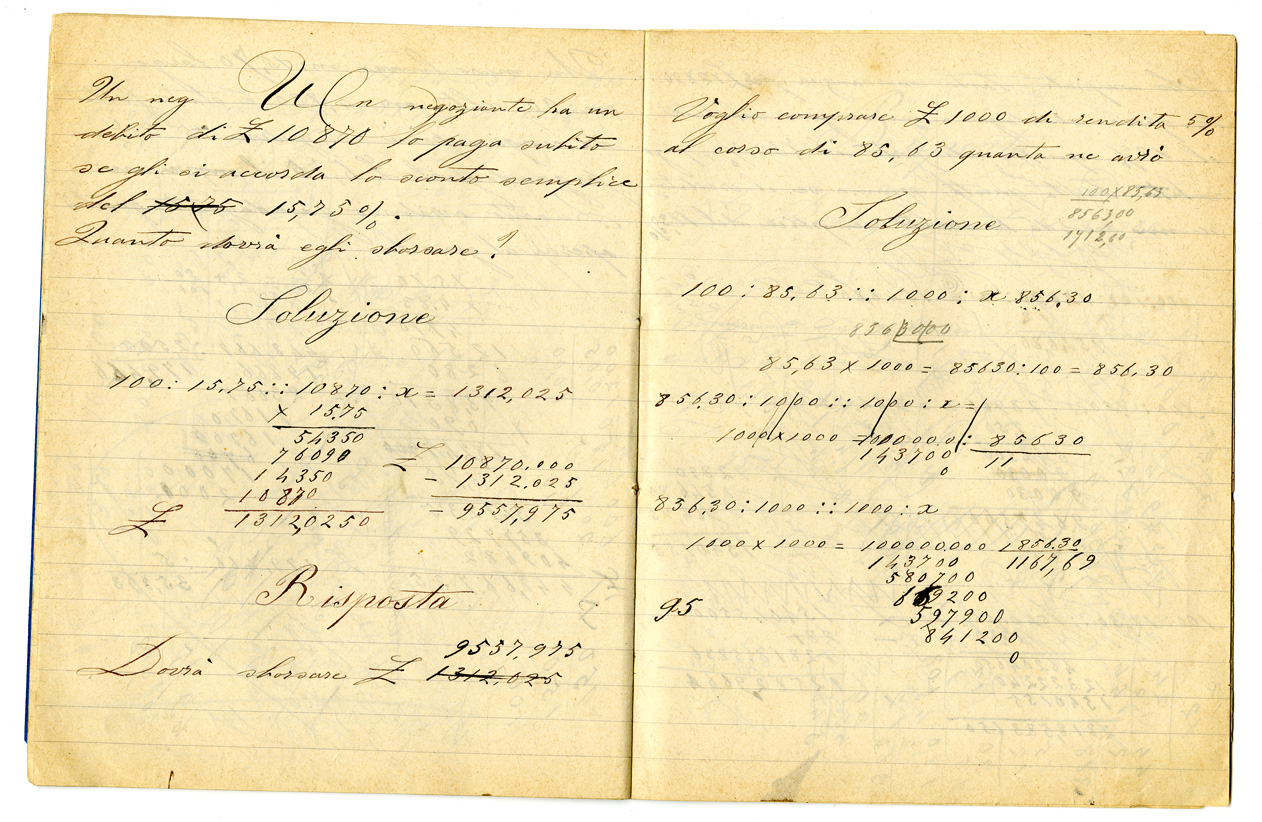 Un neg Un negoziante ha un
debito di £ 10870 lo paga subito
se gli si accorda lo sconto semplice
del 15,75 15,75 %.
Quanto dovrà egli sborsare?
Soluzione
100 : 15,75 :: 10870 : x = 1312,025
x 15.75
54350
76090
14350
10870
£ 1312,0250
£ 10870.000
- 1312.025
- 9557,975
Risposta
9557,975
Dovrà sborsare £ 1312,025
Voglio comprare £ 1000 di rendita 5%
al corso di 85,63 quanta ne avrò
100x85,63
856300
1712,60
Soluzione
100 : 85,63 :: 1000 : x 856.30
85,63 x 1000 = 85630:100 = 856,30
856.30 : 1000 :: 1000 : x =
1000x1000 = 1000000 : 85630
143700 11
0
856,30 : 1000 :: 1000 : x
1000x1000 = 100000.000 856.30
143700 1167,69
580700
669200
597900
841200
0
95